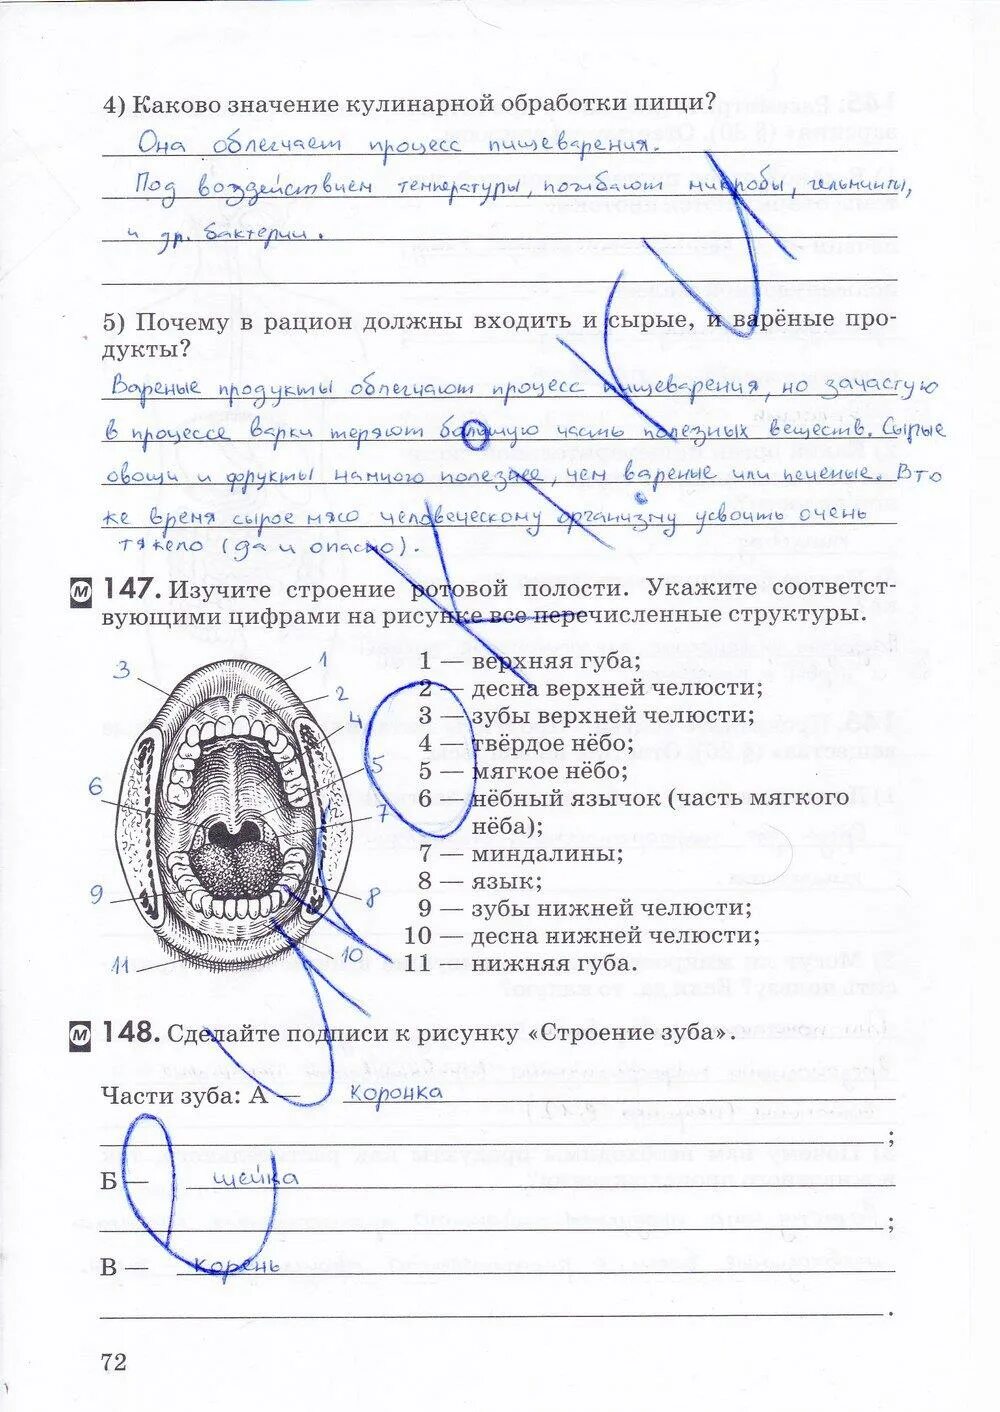 4) Каково значение кулинарной обработки пищи?
Она облегчает процесс пищеварения.
Под воздействием температуры, погибают микробы, гельминты,
и др. бактерии.
5) Почему в рацион должны входить и сырые, и варёные про-
дукты?
Вареные продукты облегчают процесс пищеварения, но зачастую
в процессе варки теряют большую часть полезных веществ. Сырые
овощи и фрукты намного полезнее, чем вареные или печеные. В то
же время сырое мясо человеческому организму усвоить очень
тяжело (да и опасно).
М 147. Изучите строение ротовой полости. Укажите соответст-
вующими цифрами на рисунке все перечисленные структуры.
1 — верхняя губа;
2 — десна верхней челюсти;
3 — зубы верхней челюсти;
4 — твёрдое нёбо;
5 — мягкое нёбо;
6 — нёбный язычок (часть мягкого
нёба);
7 — миндалины;
8 — язык;
9 — зубы нижней челюсти;
10 — десна нижней челюсти;
11 — нижняя губа.
3
1
2
4
5
6
7
9
8
10
11
М 148. Сделайте подписи к рисунку «Строение зуба».
Части зуба: А — коронка
;
Б — шейка
;
В — корень
.
72